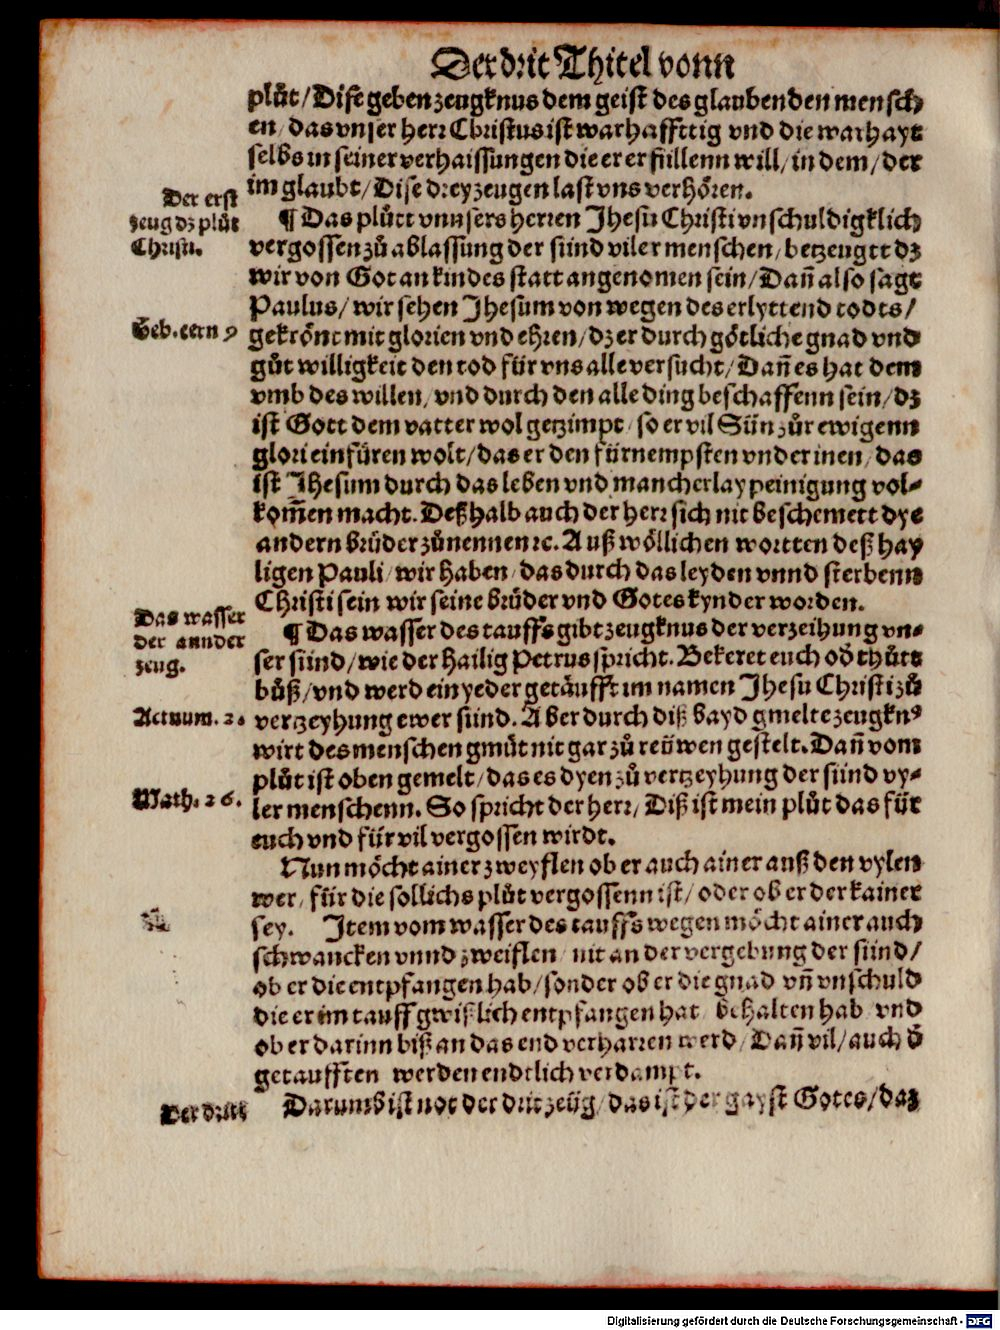 Der drit Thitel vonn
plůt/ Dise geben zeugknus dem geist des glaubenden mensch
en/ das vnser herr Christus ist warhaffttig vnd die warhayt
selbs in seiner verhaissungen die er erfüllenn will/ in dem/ der
im glaubt/ Dise drey zeugen last vns verhören.
Der erst
zeug dz plůt
Christi.
¶ Das plůtt vnnsers herren Jhesu Christi vnschuldigklich
vergossen zů ablassung der sünd viler menschen/ betzeugtt dz
wir von Got an kindes statt angenomen sein/ Dañ also sagt
Paulus/ wir sehen Jhesum von wegen des erlyttend todts/
Heb. eern 9
gekrönt mit glorien vnd ehren/ dz er durch götliche gnad vnd
gůt willigkeit den tod für vns alle versucht/ Dañ es hat dem
vmb des willen/ vnd durch den alle ding beschaffenn sein/ dz
ist Gott dem vatter wol getzimpt/ so er vil Sün zůr ewigenn
glori einfüren wolt/ das er den fürnempsten vnder inen/ das
ist Jhesum durch das leben vnd mancherlay peinigung vol-
kom̃en macht. Deßhalb auch der herr sich nit beschemett dye
andern brüder zůnennen ꝛc. Auß wöllichen wortten deß hay
ligen Pauli/ wir haben/ das durch das leyden vnnd sterbenn
Christi sein wir seine brüder vnd Gotes kynder worden.
Das wasser
der annder
zeug.
¶ Das wasser des tauffs gibt zeugknus der verzeihung vn-
ser sünd/ wie der hailig Petrus spricht. Bekeret euch oď thůtt
bůß/ vnd werd ein yeder getäufft im namen Jhesu Christi zů
Actuum. 2.
vertzeyhung ewer sünd. Aber durch diß bayd gmelte zeugknꝰ
wirt des menschen gmůt nit gar zů reüwen gestelt. Dañ vom
plůt ist oben gemelt/ das es dyen zů vertzeyhung der sünd vy-
Math. 26.
ler menschenn. So spricht der herr/ Diß ist mein plůt das für
euch vnd für vil vergossen wirdt.
Nun möcht ainer zweyflen ob er auch ainer auß den vylen
wer/ für die sollichs plůt vergossenn ist/ oder ob er der kainer
sey. Item vom wasser des tauffs wegen möcht ainer auch
schwancken vnnd zweiflen/ nit an der vergebung der sünd/
ob er die entpfangen hab/ sonder ob er die gnad vñ vnschuld
die er im tauff gwißlich entpfangen hat/ behalten hab/ vnd
ob er darinn biß an das end verharren werd/ Dañ vil/ auch ď
getaufften werden endtlich verdampt.
Der dritt
Darumb ist not der drit zeüg/ das ist der gayst Gotes/ daz
Digitalisierung gefördert durch die Deutsche Forschungsgemeinschaft - DFG